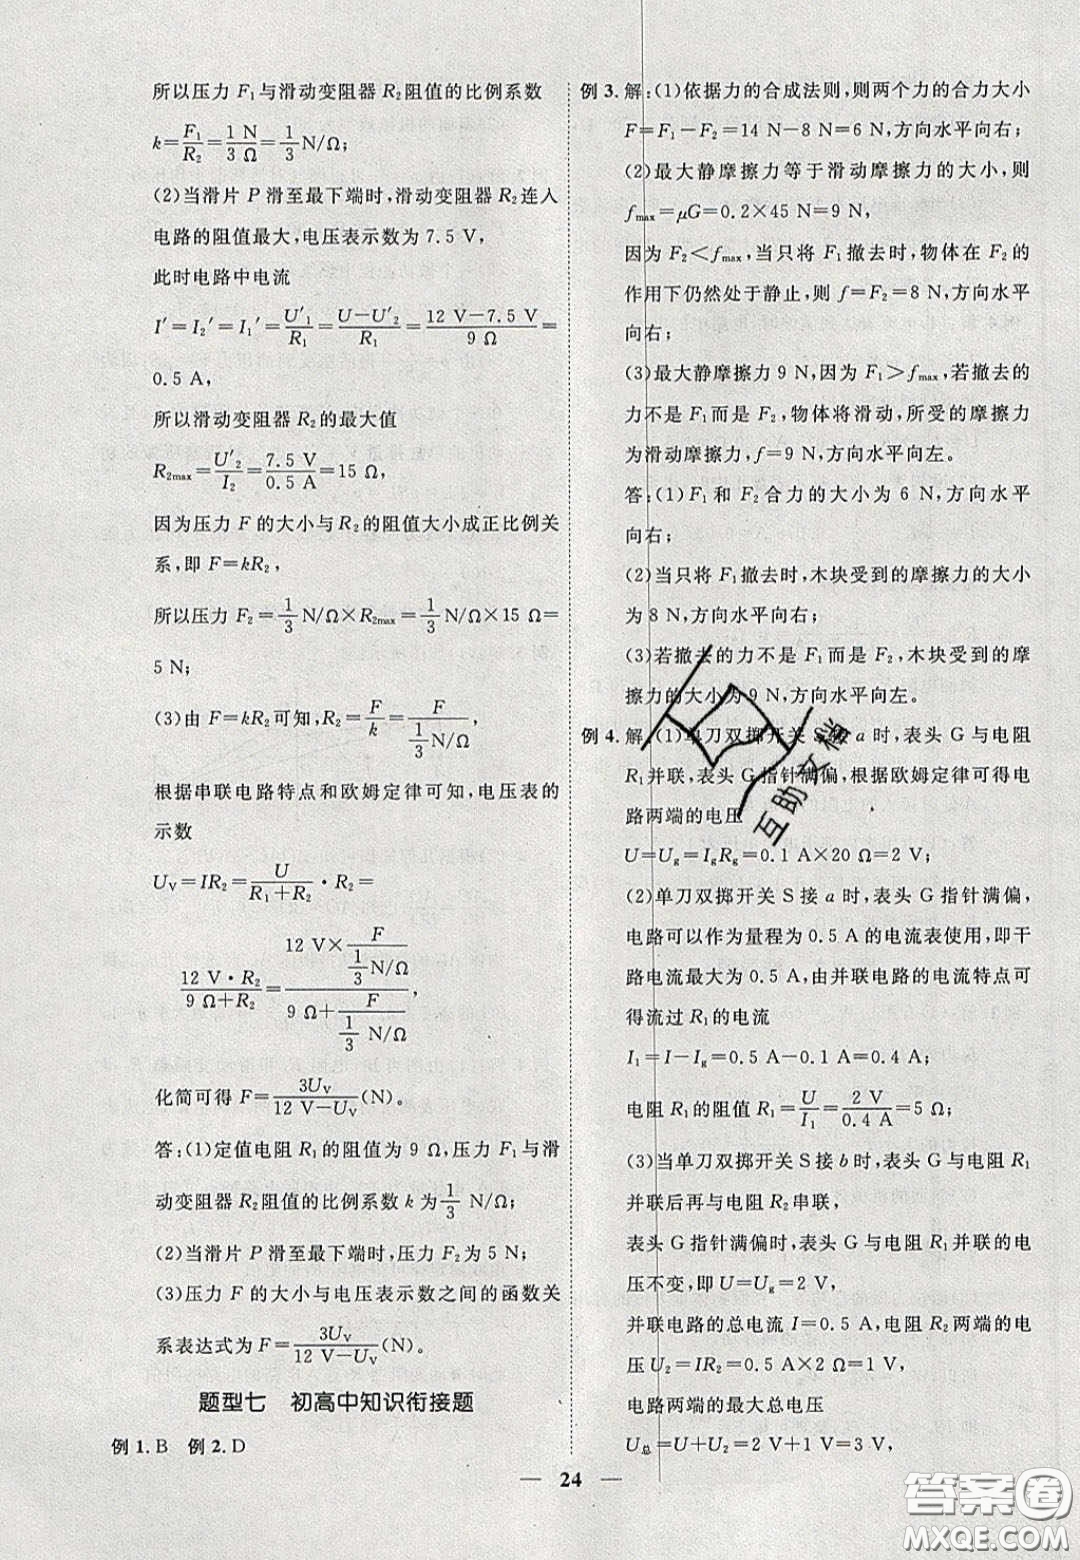 所以压力 F₁与滑动变阻器 R₂阻值的比例系数
k=F₁/R₂=1 N/3 Ω=1/3 N/Ω；
(2)当滑片 P 滑至最下端时，滑动变阻器 R₂连入
电路的阻值最大，电压表示数为 7.5 V，
此时电路中电流
I′=I₂′=I₁′=U′₁/R₁=(U−U′₂)/R₁=(12 V−7.5 V)/9 Ω=
0.5 A，
所以滑动变阻器 R₂的最大值
R₂max=U′₂/I₂=7.5 V/0.5 A=15 Ω，
因为压力 F 的大小与 R₂的阻值大小成正比例关
系，即 F=kR₂，
所以压力 F₂=1/3 N/Ω×R₂max=1/3 N/Ω×15 Ω=
5 N；
(3)由 F=kR₂可知，R₂=F/k=F/(1/3 N/Ω)，
根据串联电路特点和欧姆定律可知，电压表的
示数
U_V=IR₂=U/(R₁+R₂)·R₂=
(12 V·R₂)/(9 Ω+R₂)=(12 V×F/(1/3 N/Ω))/(9 Ω+F/(1/3 N/Ω))，
化简可得 F=3U_V/(12 V−U_V)(N)。
答：(1)定值电阻 R₁的阻值为 9 Ω，压力 F₁与滑
动变阻器 R₂阻值的比例系数 k 为1/3 N/Ω；
(2)当滑片 P 滑至最下端时，压力 F₂为 5 N；
(3)压力 F 的大小与电压表示数之间的函数关
系表达式为 F=3U_V/(12 V−U_V)(N)。
题型七 初高中知识衔接题
例 1. B 例 2. D
例 3. 解：(1)依据力的合成法则，则两个力的合力大小
F=F₁−F₂=14 N−8 N=6 N，方向水平向右；
(2)最大静摩擦力等于滑动摩擦力的大小，则
f_max=μG=0.2×45 N=9 N，
因为 F₂<f_max，当只将 F₁撤去时，物体在 F₂的
作用下仍然处于静止，则 f=F₂=8 N，方向水平
向右；
(3)最大静摩擦力 9 N，因为 F₁>f_max，若撤去的
力不是 F₁而是 F₂，物体将滑动，所受的摩擦力
为滑动摩擦力，f=9 N，方向水平向左。
答：(1)F₁和 F₂合力的大小为 6 N，方向水平
向右；
(2)当只将 F₁撤去时，木块受到的摩擦力的大小
为 8 N，方向水平向右；
(3)若撤去的力不是 F₁而是 F₂，木块受到的摩
擦力的大小为 9 N，方向水平向左。
例 4. 解：(1)单刀双掷开关 S接 a 时，表头 G 与电阻
R₁并联，表头 G 指针满偏，根据欧姆定律可得电
路两端的电压
U=U_g=I_gR_g=0.1 A×20 Ω=2 V；
(2)单刀双掷开关 S 接 a 时，表头 G 指针满偏，
电路可以作为量程为 0.5 A 的电流表使用，即干
路电流最大为 0.5 A，由并联电路的电流特点可
得流过 R₁的电流
I₁=I−I_g=0.5 A−0.1 A=0.4 A；
电阻 R₁的阻值 R₁=U/I₁=2 V/0.4 A=5 Ω；
(3)当单刀双掷开关 S 接 b 时，表头 G 与电阻 R₁
并联后再与电阻 R₂串联，
表头 G 指针满偏时，表头 G 与电阻 R₁并联的电
压不变，即 U=U_g=2 V，
并联电路的总电流 I=0.5 A，电阻 R₂两端的电
压 U₂=IR₂=0.5 A×2 Ω=1 V，
电路两端的最大总电压
U总=U+U₂=2 V+1 V=3 V；
— 24 —
互助文档
答案圈
MXQE.COM